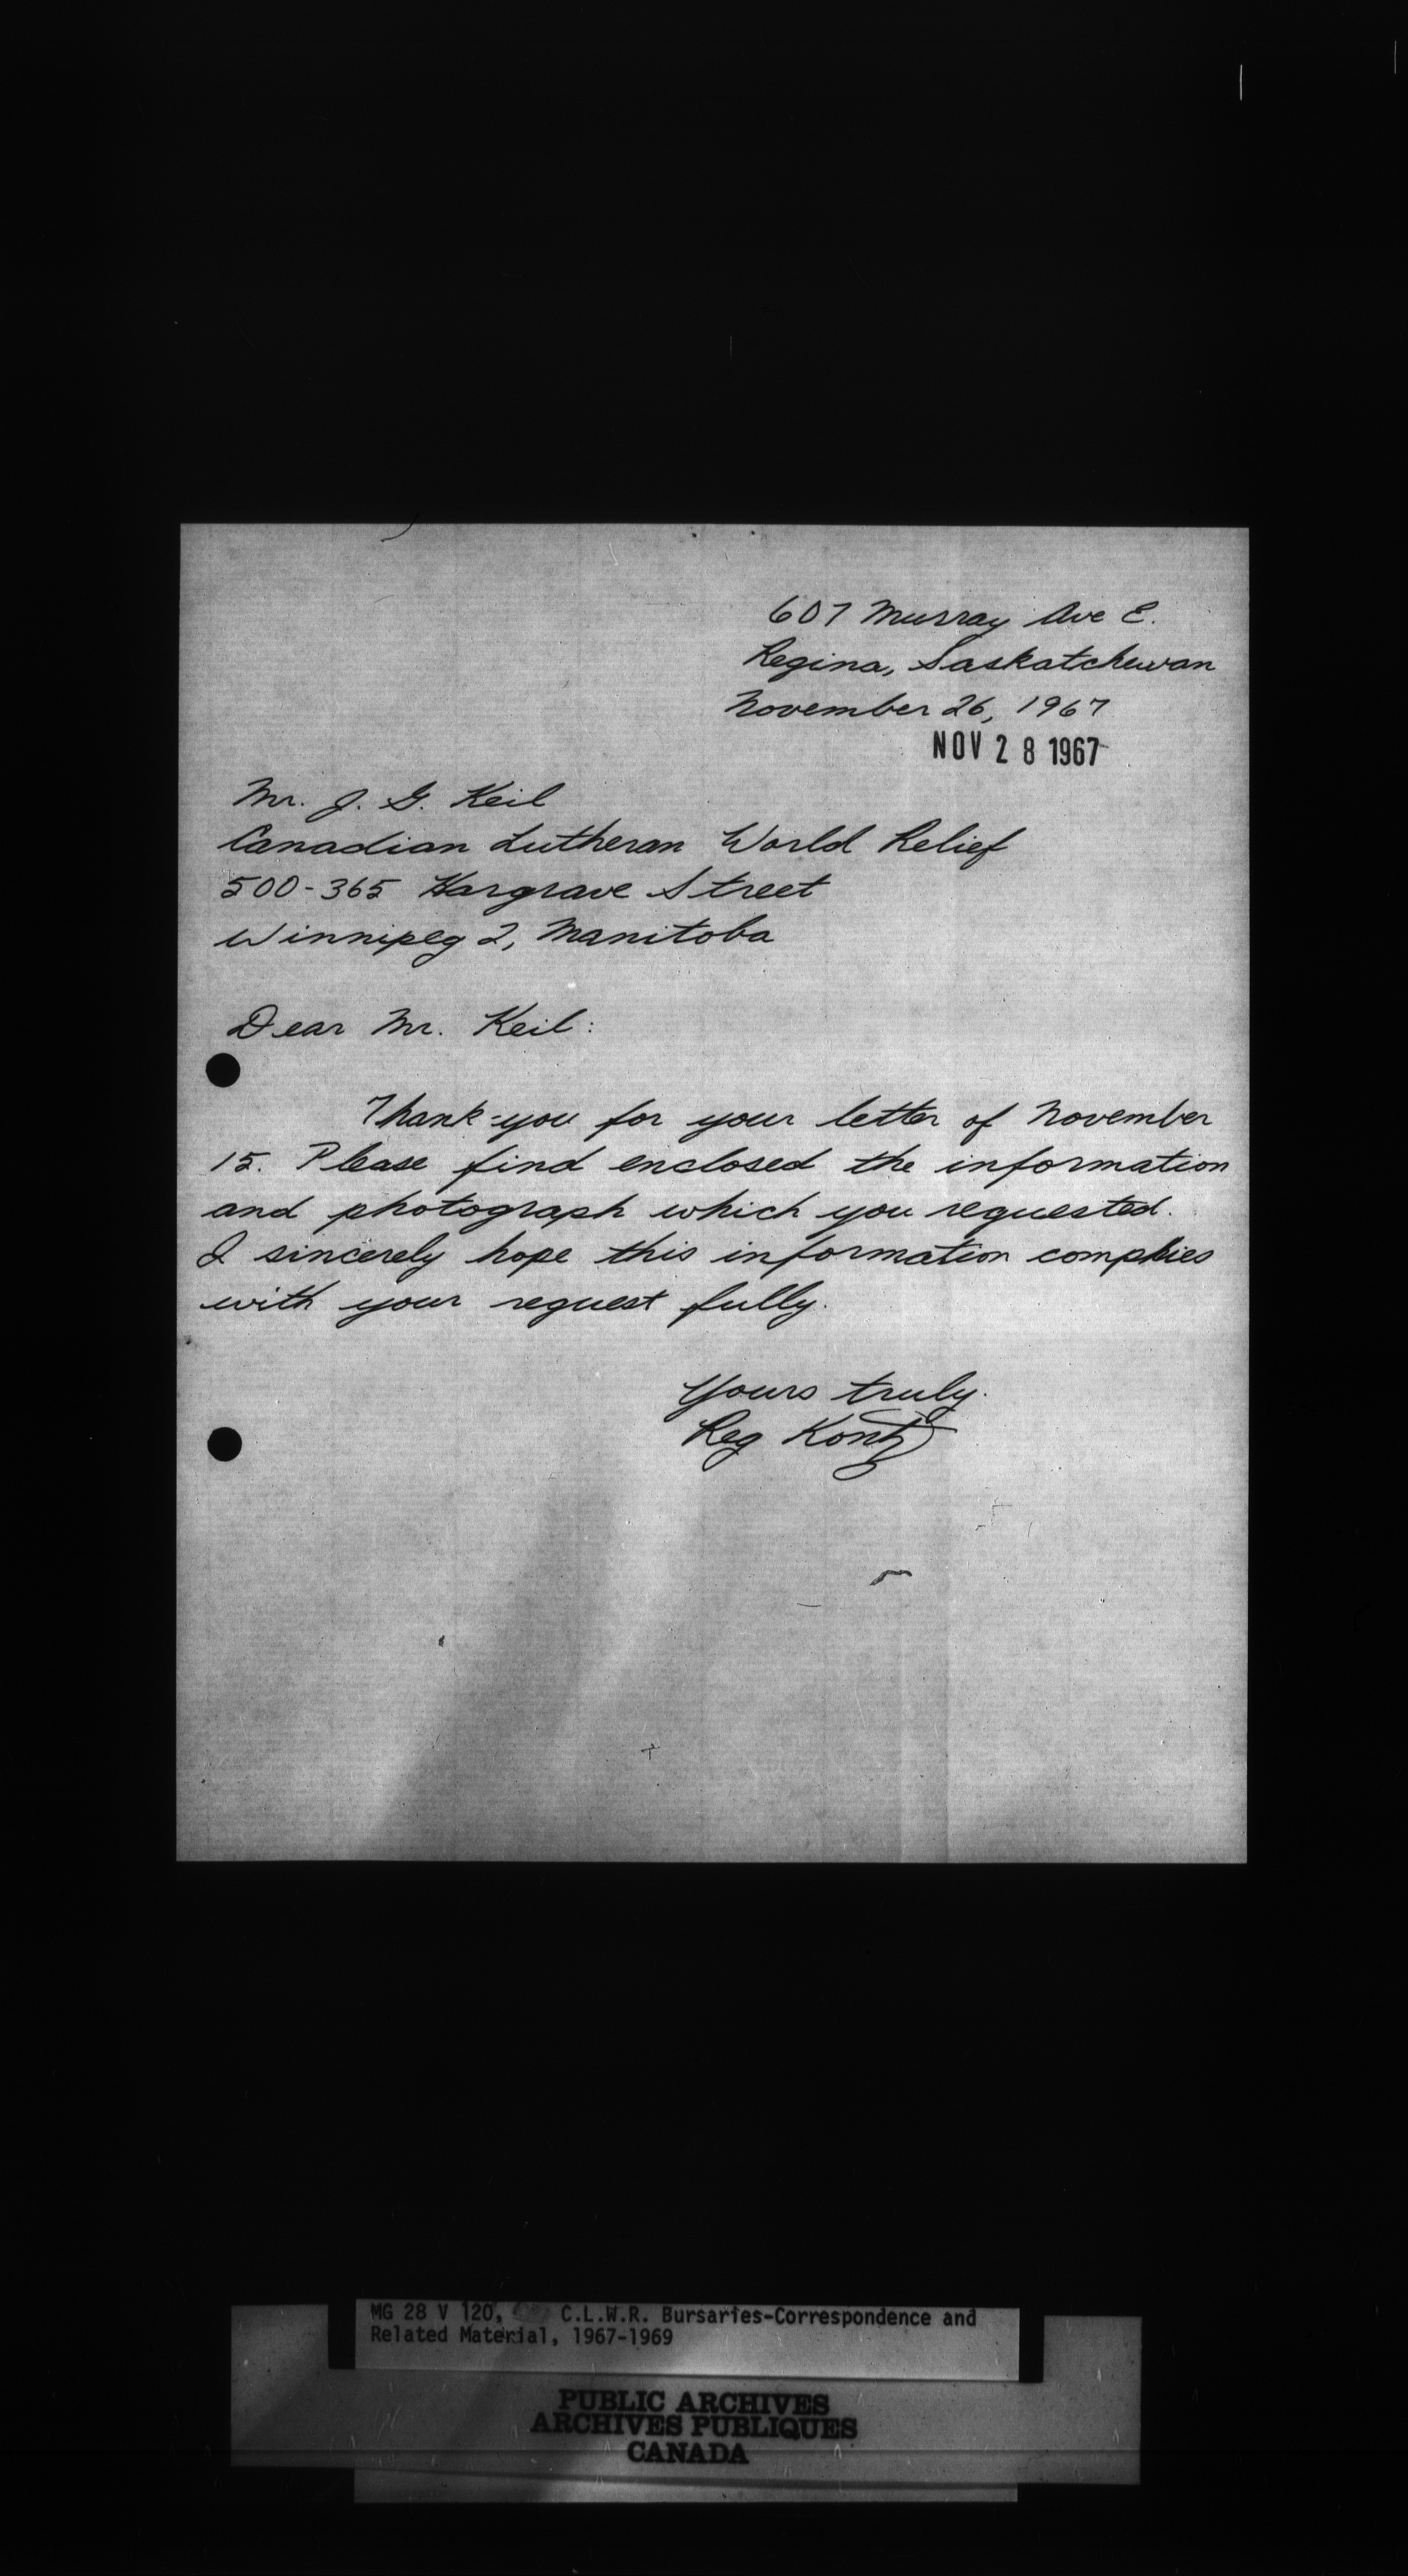 607 Murray Ave E.
Regina, Saskatchewan
November 26, 1967
NOV 28 1967
Mr. J. G. Keil
Canadian Lutheran World Relief
500-365 Hargrave Street
Winnipeg 2, Manitoba
Dear Mr. Keil:
Thank-you for your letter of November
15. Please find enclosed the information
and photograph which you requested.
I sincerely hope this information complies
with your request fully.
Yours truly.
Reg Kontz
MG 28 V 120, C.L.W.R. Bursaries-Correspondence and
Related Material, 1967-1969
PUBLIC ARCHIVES
ARCHIVES PUBLIQUES
CANADA